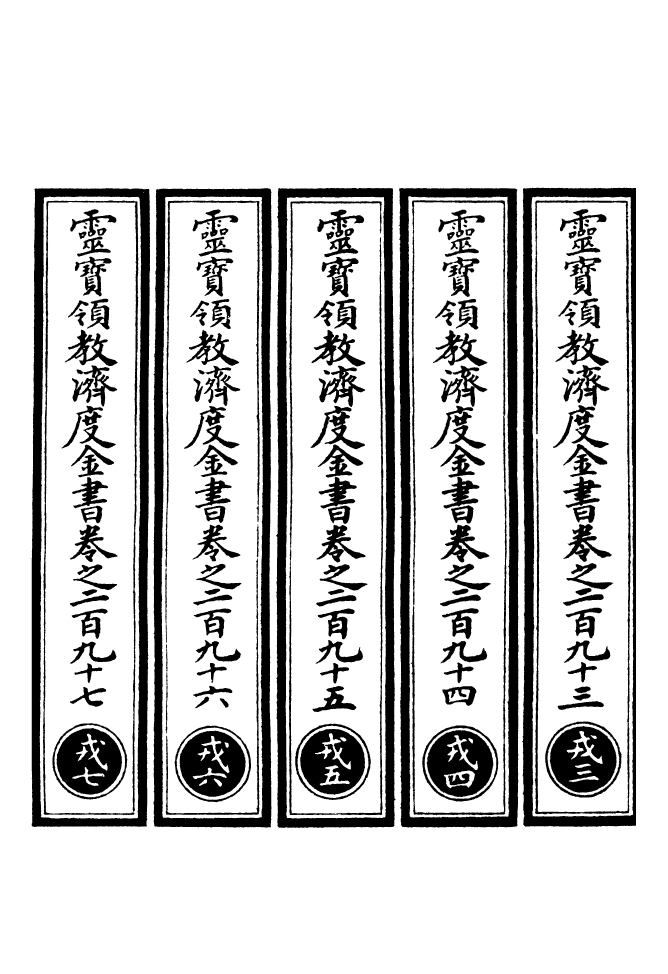 靈寶領教濟度金書卷之二百九十三
戎三
靈寶領教濟度金書卷之二百九十四
戎四
靈寶領教濟度金書卷之二百九十五
戎五
靈寶領教濟度金書卷之二百九十六
戎六
靈寶領教濟度金書卷之二百九十七
戎七